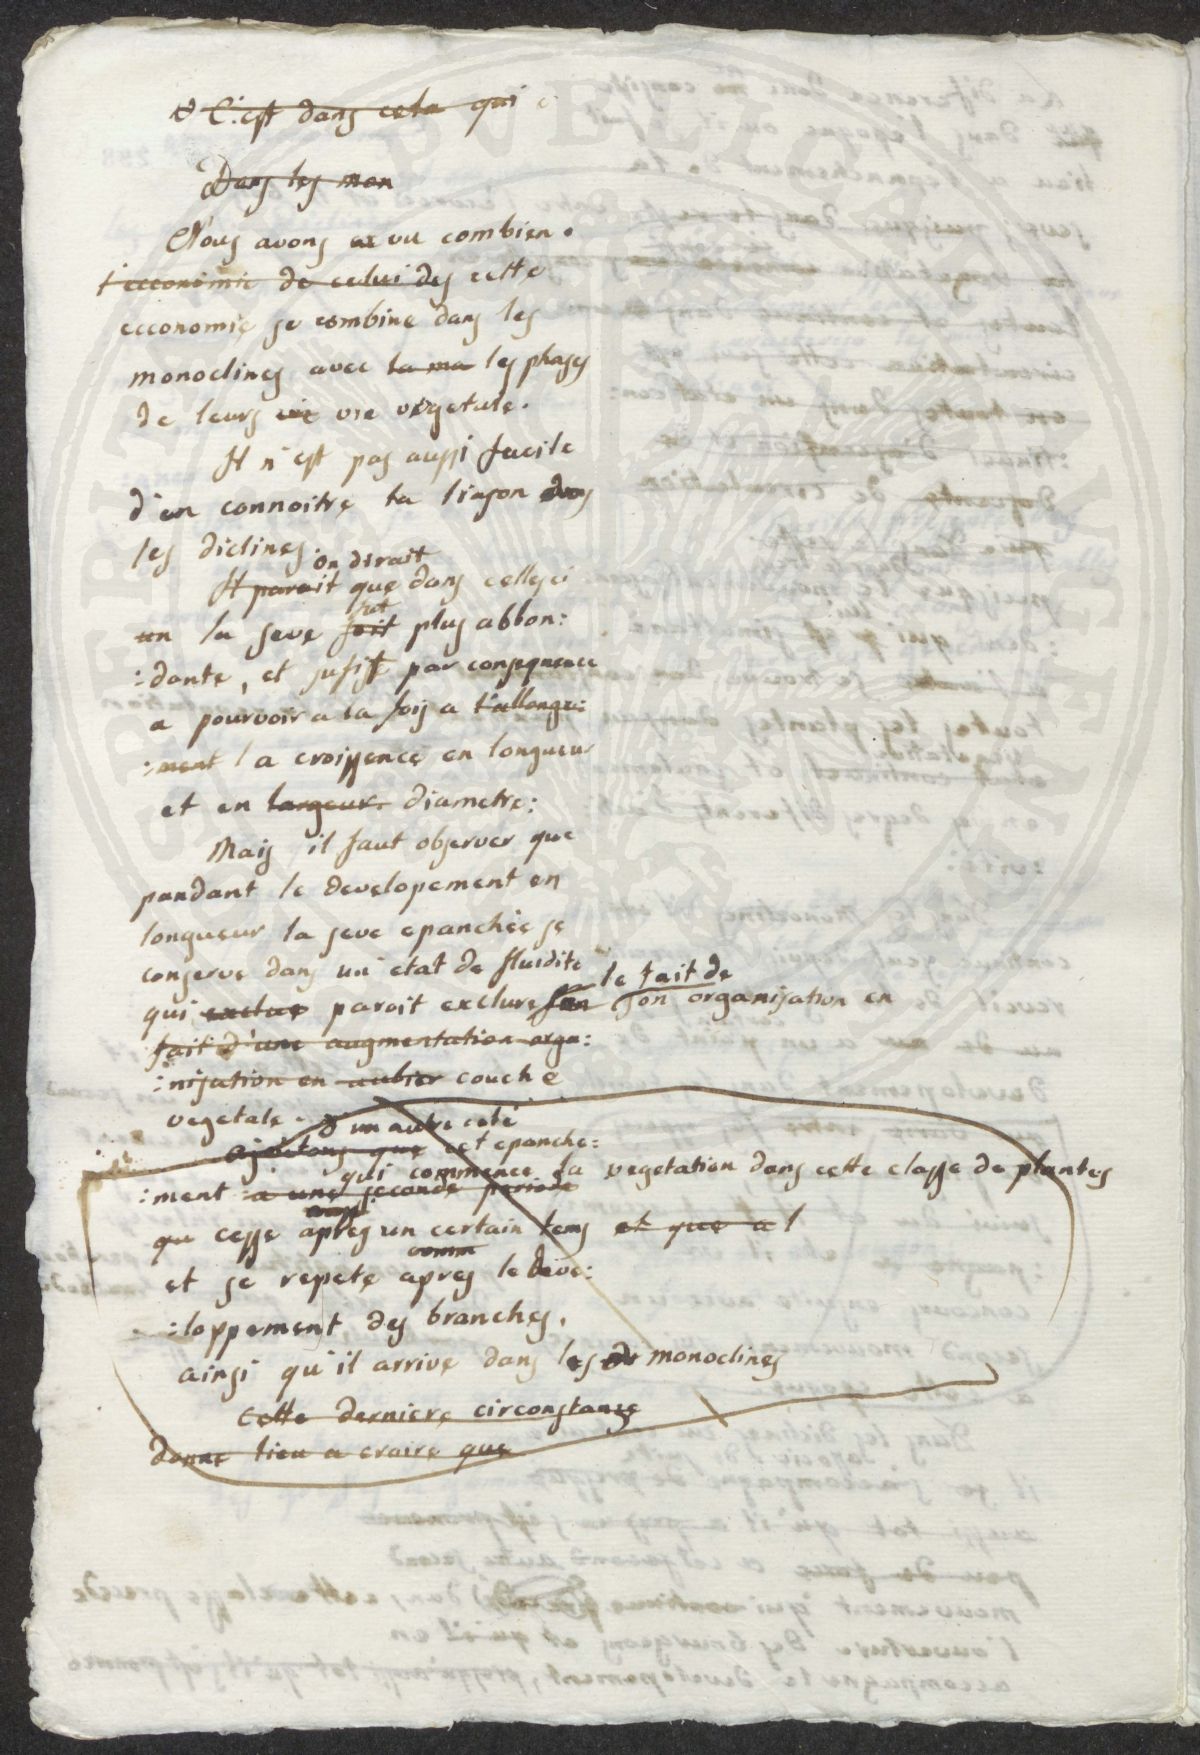 & C'est dans cela qui
Dans les mon
Nous avons vu combien
l'economie de celui des cette
economie se combine dans les
monoclines avec la ma les phases
de leurs vie vie vegetale.
Il n'est pas aussi facile
d'en connoitre la liason dans
les diclines
on dirait
Il parait que dans celles ci
fut
un la seve soit plus abbon:
:dante, et sufist par consequence
a pourvoir a la fois a l'allonge:
:ment la croissence en longueur
et en largeur diametre:
Mais il faut observer que
pandant le developement en
longueur la seve epanchée se
conserve dans un etat de fluidite
le fait de
qui exclue parait exclure son organisation en
fait d'une augmentation orga:
:nisation en aubier couche
vegetale.
d'un autre coté
ajoutons que cet epanche:
qui commence la vegetation dans cette classe de plantes
:ment a une seconde periode
qu cesse aptes un certain tems et que a l
comm
et se repete apres le deve:
:loppement des branches,
ainsi qu'il arrive dans les monoclines
Cette derniere circonstanse
donne lieu a craire que